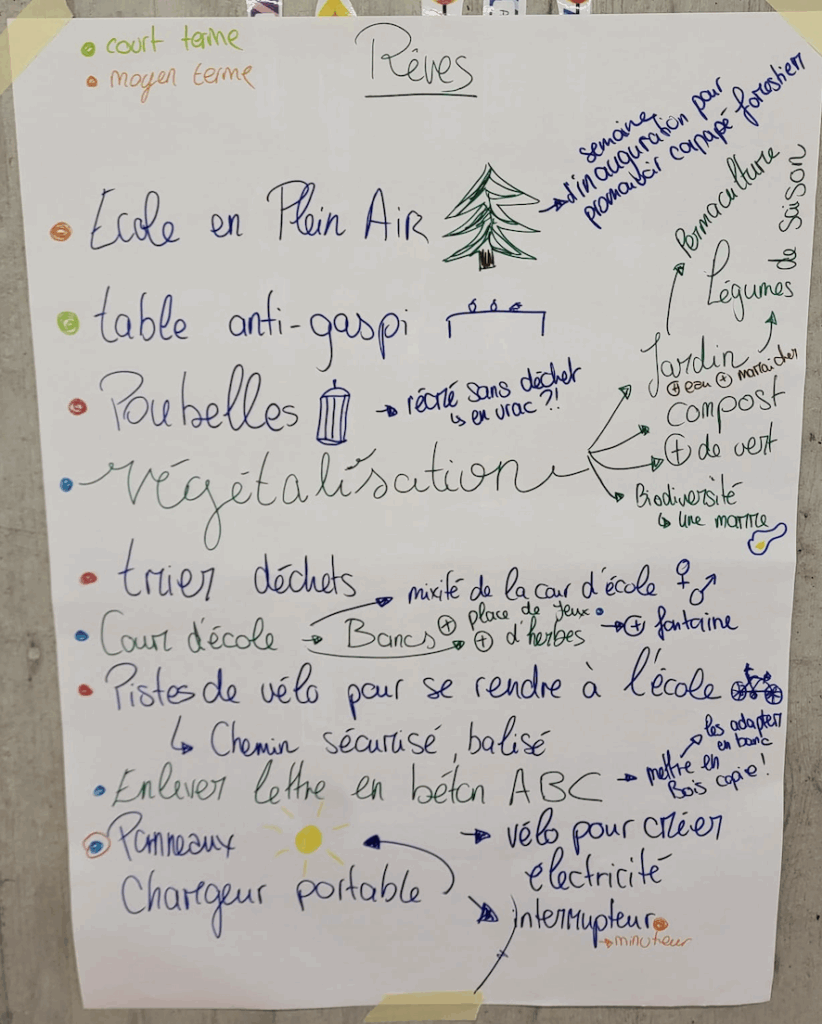 court terme
moyen terme
Rêves
Ecole en Plein Air
semaine
d'inauguration pour
promouvoir canapé forestier
table anti-gaspi
Poubelles
récré sans déchet
en vrac ?!
Végétalisation
Jardin
+ eau + maraicher
Permaculture
Légumes de saison
compost
+ de vert
Biodiversité
une marre
trier déchets
mixité de la cour d'école ♀♂
Cour d'école
Bancs
+ place de jeux
+ d'herbes
+ fontaine
Pistes de vélo pour se rendre à l'école
Chemin sécurisé, balisé
Enlever lettre en béton ABC
mettre en
Bois copie !
les adapter
en banc
Panneaux
vélo pour créer
électricité
Chargeur portable
interrupteur
minuteur